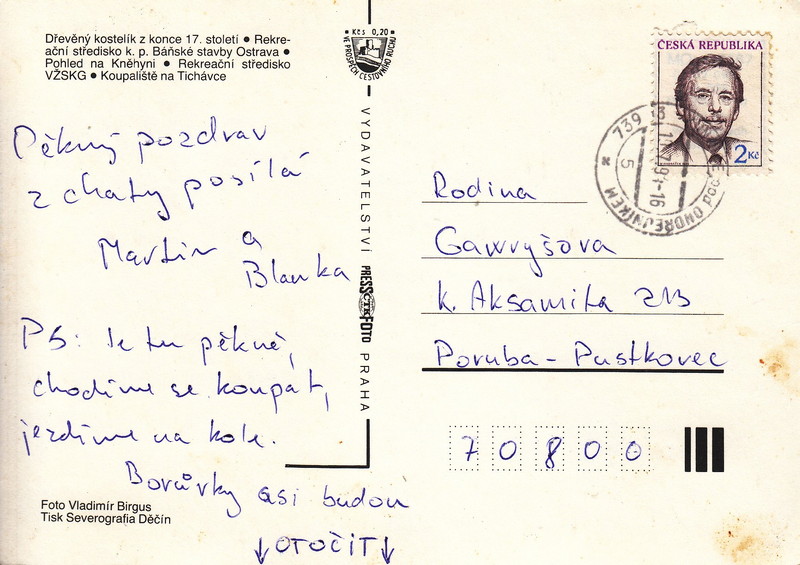 Dřevěný kostelík z konce 17. století ● Rekre-
ační středisko k. p. Báňské stavby Ostrava ●
Pohled na Kněhyni ● Rekreační středisko
VŽSKG ● Koupaliště na Tichávce
Kčs 0,20
VE PROSPĚCH CESTOVNÍHO RUCHU
Pěkný pozdrav
z chaty posílá
Martin a
Blanka
PS: Je tu pěkně,
chodíme se koupat,
jezdíme na kole.
Borůvky asi budou
↓OTOČIT↓
Foto Vladimír Birgus
Tisk Severografia Děčín
VYDAVATELSTVÍ PRESSFOTO PRAHA
ČTK
ČESKÁ REPUBLIKA
2Kč
739
pod ONDŘEJNÍKEM
5
Rodina
Gawryšova
k. Aksamita 213
Poruba - Pustkovec
70800